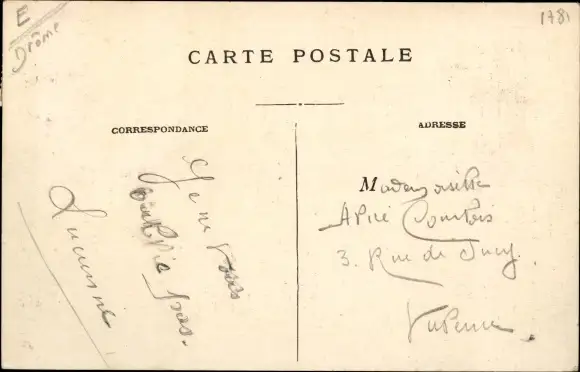 E
Drôme
1781
CARTE POSTALE
CORRESPONDANCE
ADRESSE
Je ne vous
oublie pas.
Lucienne
Mademoiselle
Courtois
3. Rue de